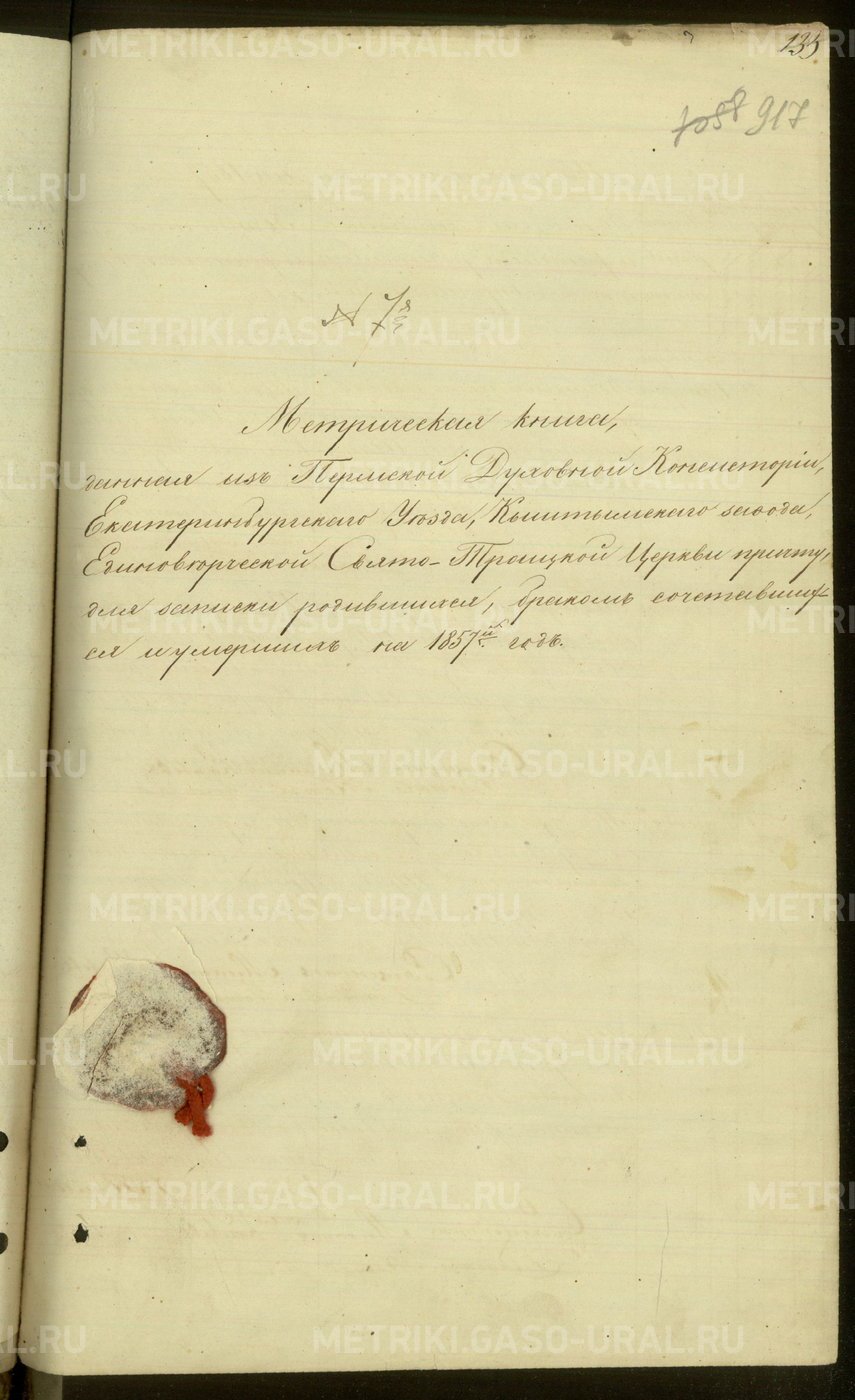 135
1058 917
№ 7й
Метрическая книга,
данная изъ Пермской Духовной Консисторіи,
Екатеринбургскаго Уѣзда, Кыштымскаго завода,
Единовѣрческой Свято-Троицкой Церкви причту,
для записки родившихся, бракомъ сочетавших-
ся и умершихъ на 1857й годъ.
METRIKI.GASO-URAL.RU